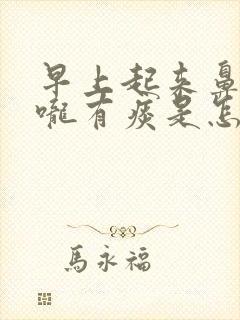 早上起来鼻
嚨有痰是怎
馬永福